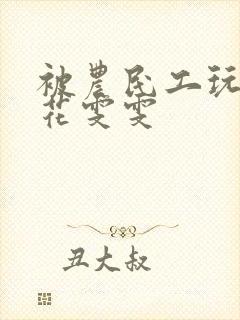 被農民工玩
花雯雯
丑大叔